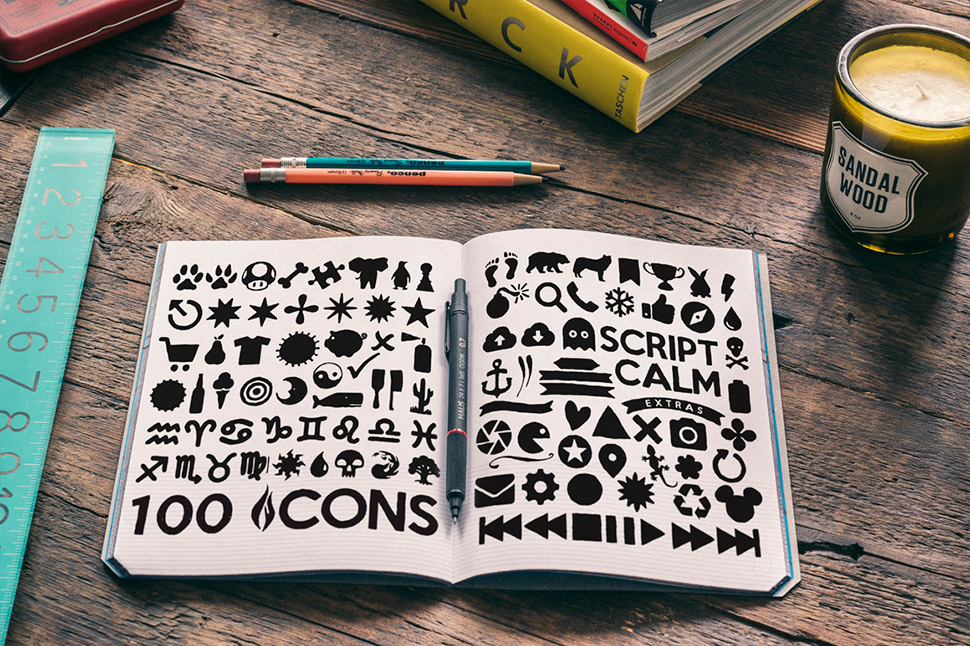 RCK
TASCHEN
penco
penco
SANDAL
WOOD
1
2
3
4
5
6
7
8
9
10
SCRIPT
CALM
EXTRAS
100 ICONS